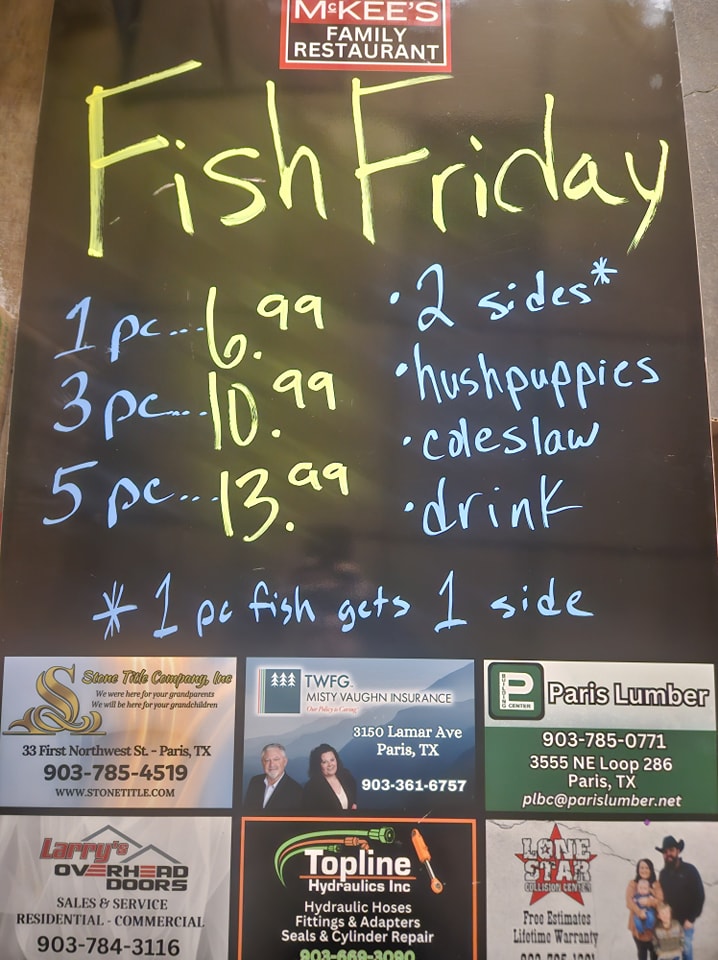 McKEE'S
FAMILY
RESTAURANT
Fish Friday
1 pc...6.99
3 pc...10.99
5 pc...13.99
• 2 sides*
• hushpuppies
• coleslaw
• drink
* 1 pc fish gets 1 side
Stone Title Company, Inc
We were here for your grandparents
We will be here for your grandchildren
33 First Northwest St. - Paris, TX
903-785-4519
WWW.STONETITLE.COM
TWFG
MISTY VAUGHN INSURANCE
Our Policy is Caring
3150 Lamar Ave
Paris, TX
903-361-6757
P
BUILDING
CENTER
Paris Lumber
903-785-0771
3555 NE Loop 286
Paris, TX
plbc@parislumber.net
Larry's
OVERHEAD
DOORS
SALES & SERVICE
RESIDENTIAL - COMMERCIAL
903-784-3116
Topline
Hydraulics Inc
Hydraulic Hoses
Fittings & Adapters
Seals & Cylinder Repair
903-669-3090
LONE
STAR
COLLISION CENTER
Free Estimates
Lifetime Warranty